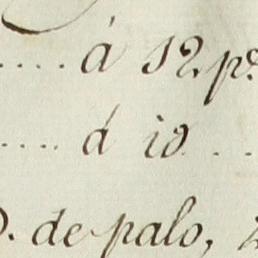 .... á 12. p.
.... á 10 . .
. de palo,